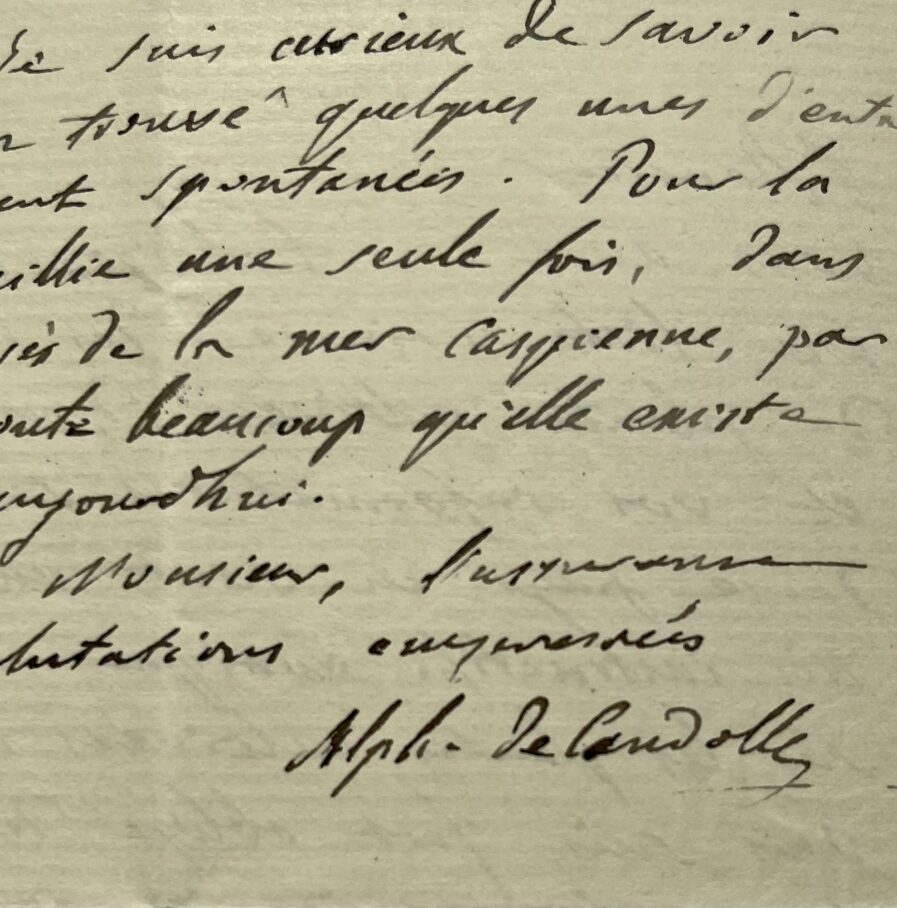 Je suis curieux de savoir
trouvé quelques unes d'entr
ent spontanées. Pour la
eillie une seule fois, dans
de la mer Caspienne, par
oute beaucoup qu'elle existe
aujourdhui.
Monsieur, l'assurance
lutations empressées
Alph. DeCandolle